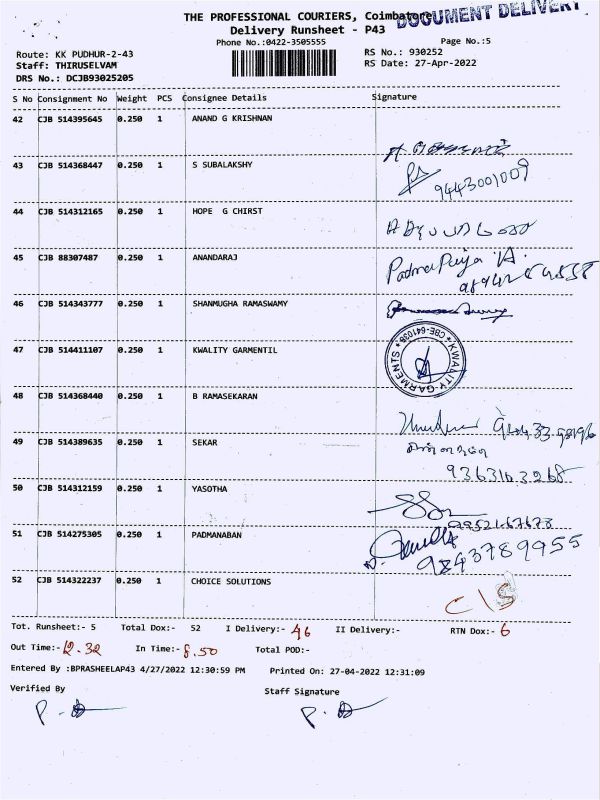 DOCUMENT DELIVERY
THE PROFESSIONAL COURIERS, Coimbatore
Delivery Runsheet - P43
Phone No.:0422-3505555
Page No.:5
Route: KK PUDHUR-2-43
RS No.: 930252
Staff: THIRUSELVAM
RS Date: 27-Apr-2022
DRS No.: DCJB93025205
S No Consignment No Weight PCS Consignee Details Signature
42 CJB 514395645 0.250 1 ANAND G KRISHNAN
43 CJB 514368447 0.250 1 S SUBALAKSHY
9443001009
44 CJB 514312165 0.250 1 HOPE G CHIRST
45 CJB 88307487 0.250 1 ANANDARAJ
Padma Priya A.
46 CJB 514343777 0.250 1 SHANMUGHA RAMASWAMY
47 CJB 514411107 0.250 1 KWALITY GARMENTIL
KWALITY GARMENTS * CBE-641038 *
48 CJB 514368440 0.250 1 B RAMASEKARAN
49 CJB 514389635 0.250 1 SEKAR
9363163268
50 CJB 514312159 0.250 1 YASOTHA
9952167673
51 CJB 514275305 0.250 1 PADMANABAN
9843789955
52 CJB 514322237 0.250 1 CHOICE SOLUTIONS
C/S
Tot. Runsheet:- 5 Total Dox:- 52 I Delivery:- 46 II Delivery:- RTN Dox:- 6
Out Time:- 12.32 In Time:- 8.50 Total POD:-
Entered By :BPRASHEELAP43 4/27/2022 12:30:59 PM Printed On: 27-04-2022 12:31:09
Verified By Staff Signature